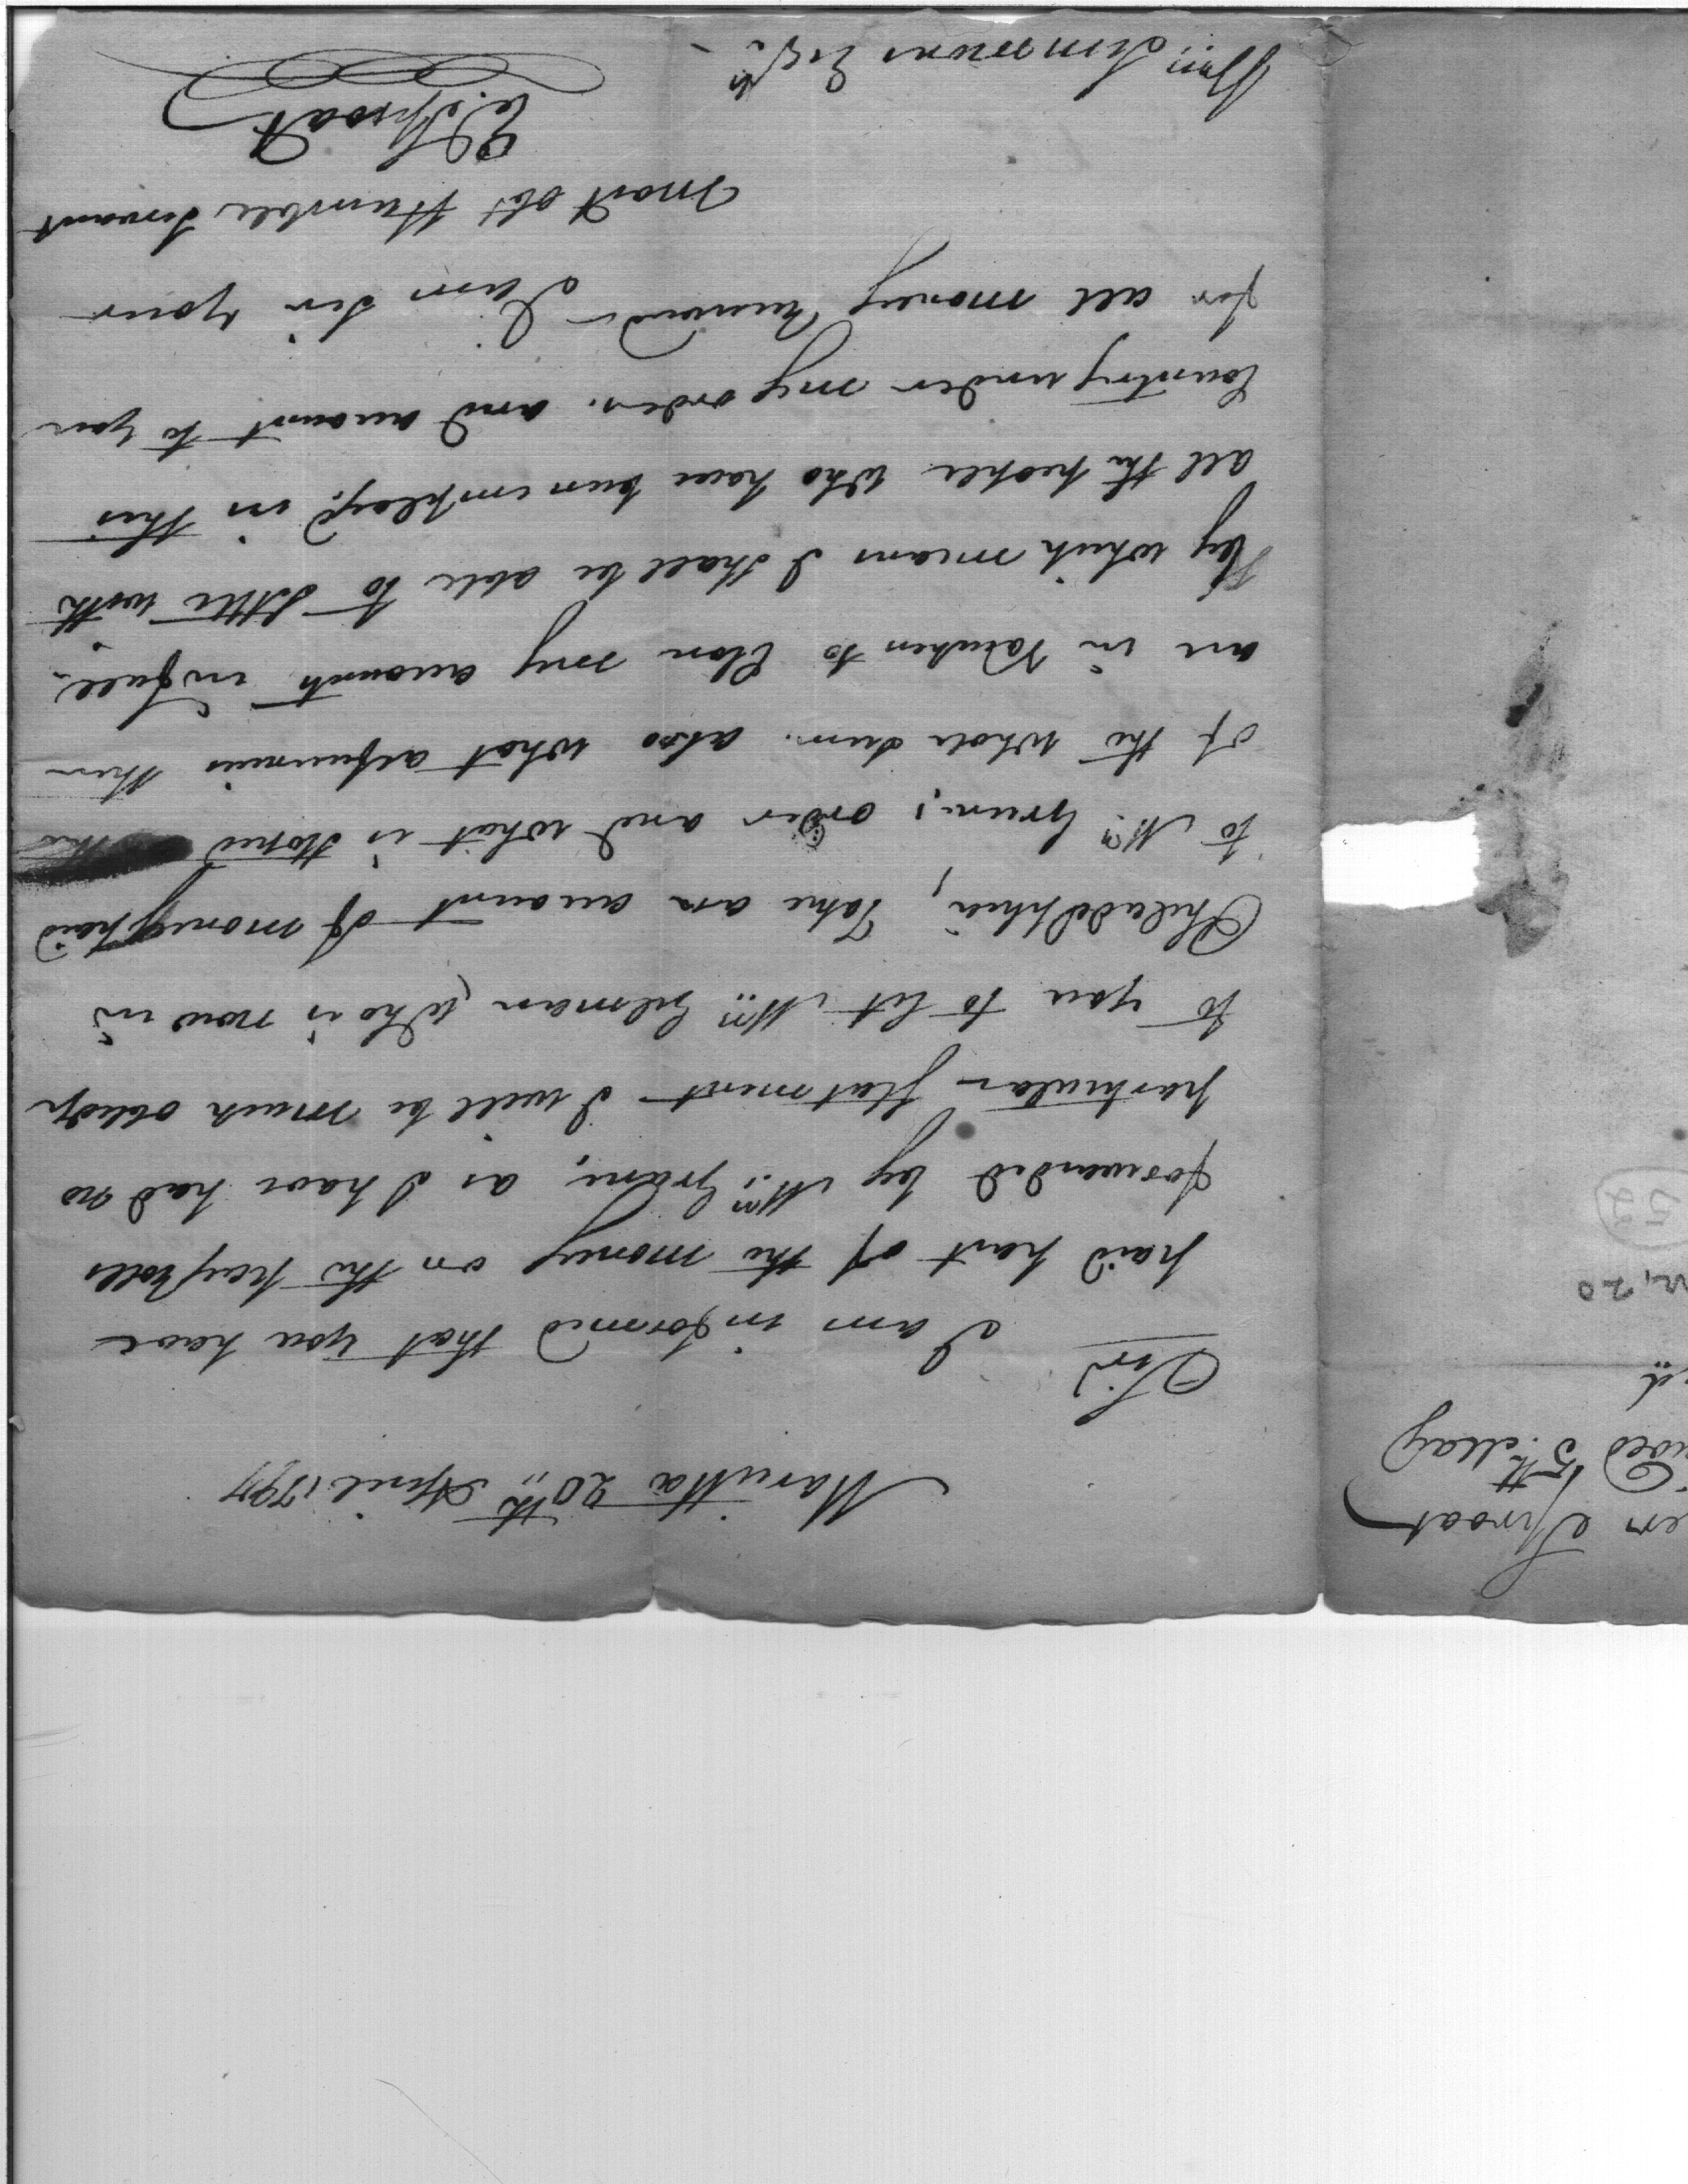 Marietta 20th April 1797
Sir
I am informed that you have
paid part of the money on the payrolls
forwarded by Mr. Greene, as I have had no
particular statment I will be much obliedg
to you to let Mr. Gilman (who is now in
Philadelphia, Take an account of money paid
to Mr. Green,s order and what is stoped
of the whole sum. also what
are in Vouchers to Close my accounts in full.
By which means I shall be able to Settle with
all the people who have been employd. in this
Country under my orders. and account to you
for all money Received I am Sir your
most obt Humble Servant
E. Sproat
Wm. Simmons Esqr.
Sproat
5th. May
20
52